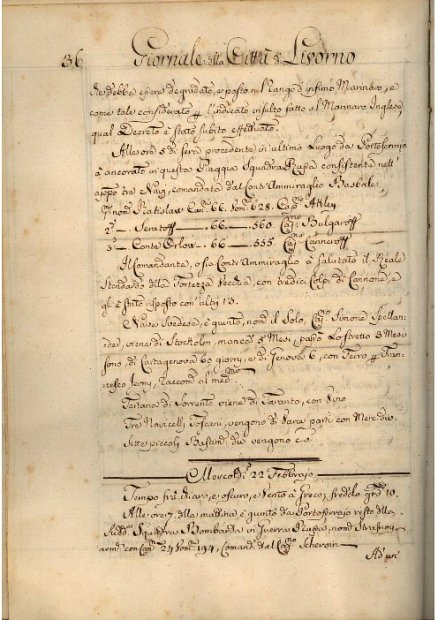 36 Giornale della Città di Livorno
che debba essere degradato, e posto nel Rango d'infimo Marinaro, e
come tale considerato p l'indicato insulto fatto al Marinaro Inglese,
qual Decreto è stato subito effettuato.
Alle ore 5 di sera procedente in ultimo Luogo da Portoferrajo
à ancorato in questa Piaggia Squadra Russa consistente nell'
app.o tre Navi, comandata dal Contr'Ammiraglio
P.a nom.a Can. 66. Uom. 628. Cap.no
2.a 66 560. Cap.no
3.a Conte Orlow 66 555. Cap.no
Il Comandante, o sia Contr'Ammiraglio à salutato il Reale
Stendardo della Fortezza Vecchia, con tredici Colpi di Cannone, e
gli è stato risposto con altri 13.
Nave Svedese, è giunta, nom.a il Sole, Cap.no Simone
viene di Stocholm, manca 5 Mesi, passò Lo Stretto 3 Mesi
sono, di Cartagenova 60 giorni, e di Genova 6, con Ferro p Fran-
cesco Jermi, Raccom. al med.mo
Tartana di Sorrento viene di Taranto, con Vino
Tre Navicelli Toscani, vengono di Varie parti con Merc. div.e
Sette piccoli Bastim. div. vengono
Mercoldì 22 Febbrajo
Tempo frà Chiaro, e oscuro, e Vento à Greco, freddo grd. 10.
Alle ore 7. della mattina è giunta da Portoferrajo resto della
Sudd.a Squadra Bombarda in Guerra Russa, nom.a
arm. con Can. 24 Uom. 194, Comand. dal Cap.no
Ad un'